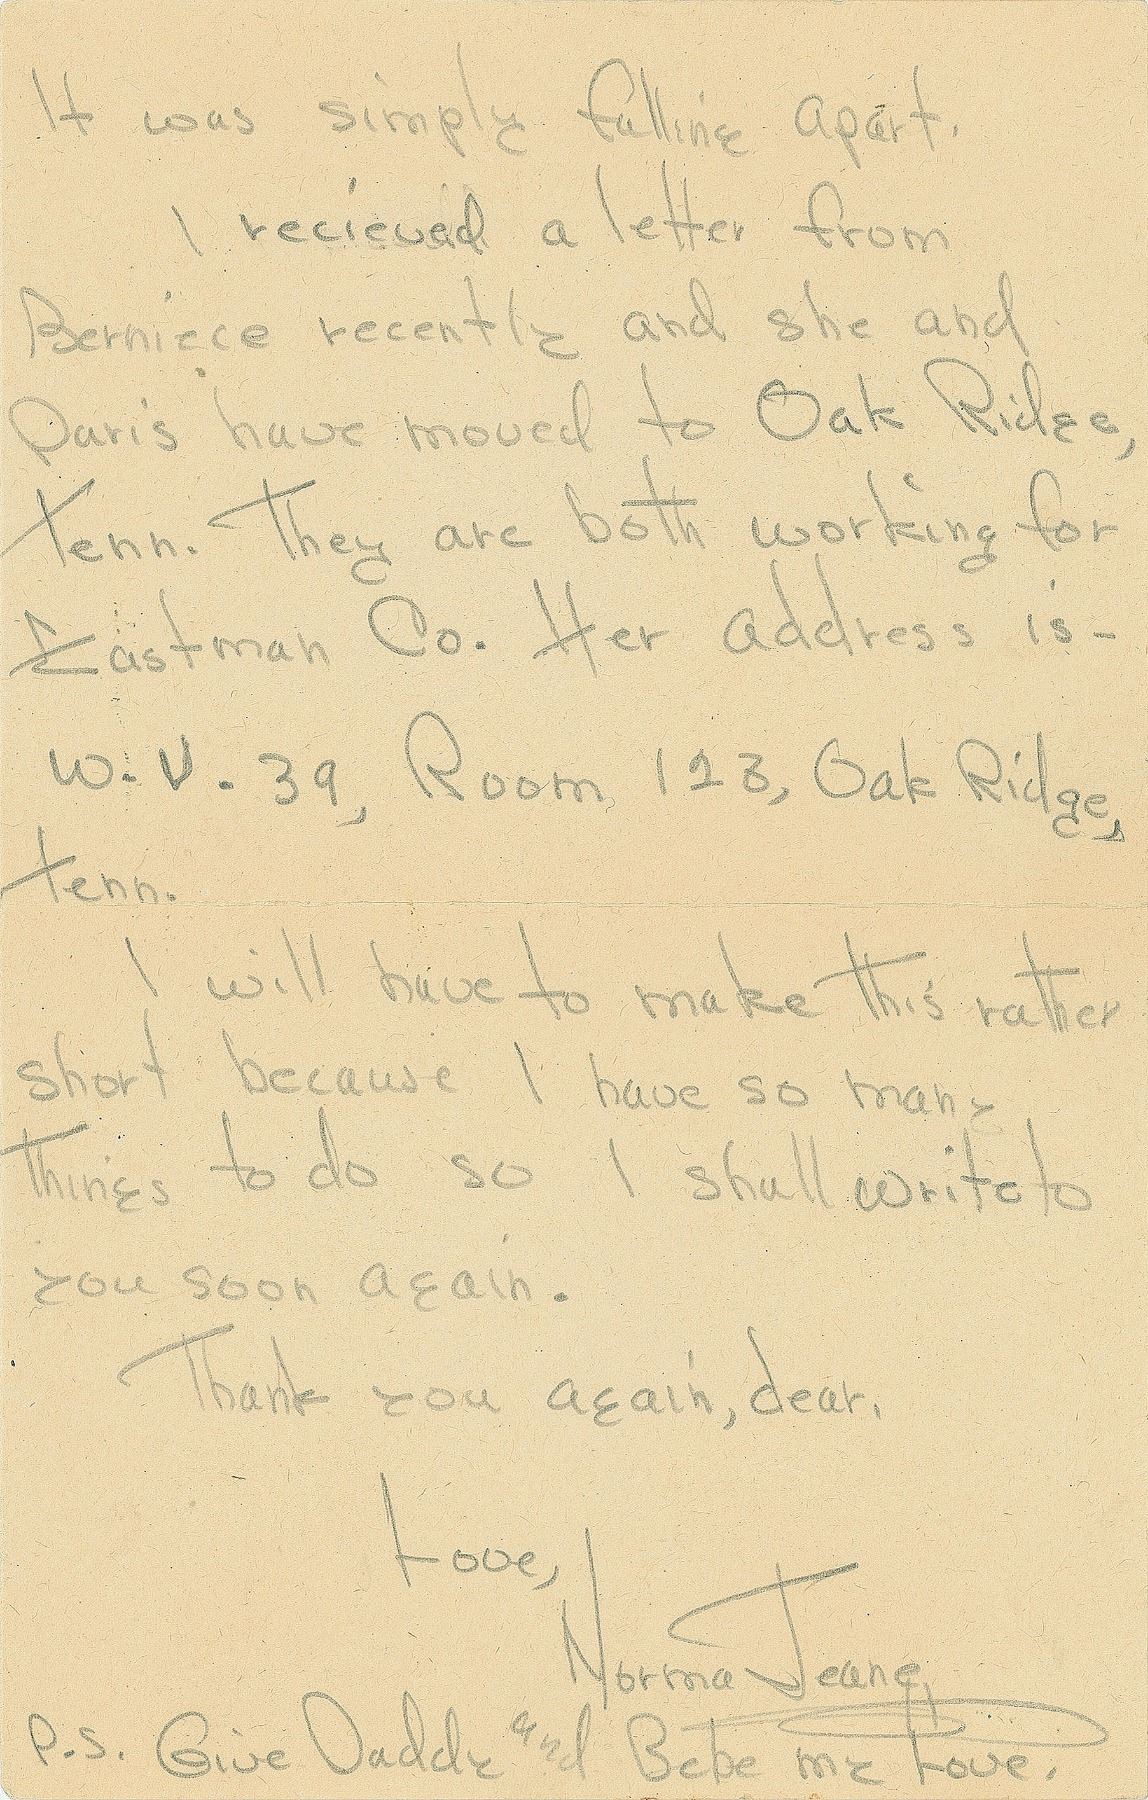 It was simply falling apart.
I recieved a letter from
Berniece recently and she and
Paris have moved to Oak Ridge,
Tenn. They are both working for
Eastman Co. Her address is-
W.V. 39, Room 123, Oak Ridge,
Tenn.
I will have to make this rather
short because I have so many
things to do so I shall write to
you soon again.
Thank you again, dear.
Love,
Norma Jeane,
P.S. Give Daddy and Bebe my Love.